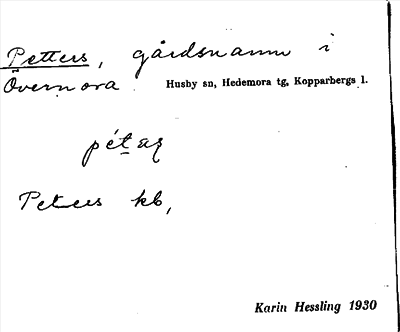 Petters, gårdsnamn i
Övernora Husby sn, Hedemora tg, Kopparbergs l.
Peters kb,
Karin Hessling 1930